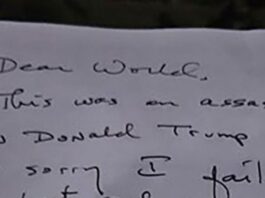 Dear World,
This was an assas
Donald Trump
sorry I fail